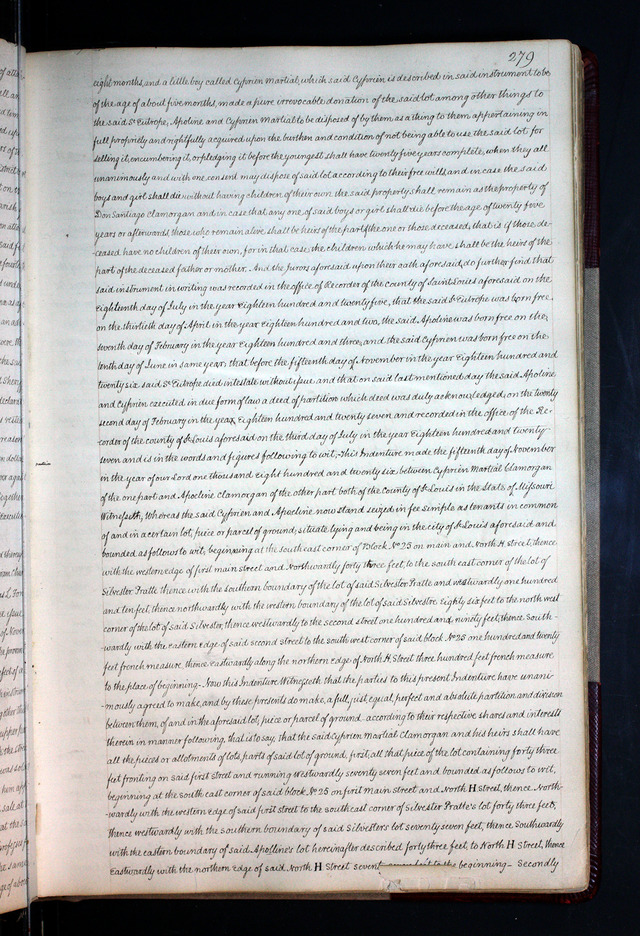 279
eight months, and a little boy called Cyprien Martial, which said Cyprien is described in said instrument to be
of the age of about five months, made a pure irrevocable donation of the said lot among other things to
the said St. Eutrope, Apoline and Cyprien Martial to be disposed of by them as a thing to them appertaining in
full propriety and rightfully acquired upon the burthen and condition of not being able to use the said lot for
selling it, encumbering it, or pledging it before the youngest shall have twenty five years complete, when they all
unanimously and with one consent may dispose of said lot according to their free will, and in case the said
boys and girl shall die without having children of their own the said property shall remain as the property of
Don Santiago Clamorgan and in case that any one of said boys or girl shall die before the age of twenty five
years or afterwards those who remain alive shall be heirs of the part of the one or those deceased, that is if those de-
ceased have no children of their own, for in that case, the children which he may have, shall be the heirs of the
part of the deceased father or mother. And the jurors aforesaid upon their oath aforesaid, do further find that
said instrument in writing was recorded in the office of Recorder of the county of Saint Louis aforesaid on the
Eighteenth day of July in the year Eighteen hundred and twenty five, that the said St. Eutrope was born free
on the thirtieth day of April in the year Eighteen hundred and two, the said Apoline was born free on the
seventh day of February in the year Eighteen hundred and three, and the said Cyprien was born free on the
tenth day of June in same year, that before the fifteenth day of November in the year Eighteen hundred and
twenty six said St. Eutrope died intestate without issue, and that on said last mentioned day the said Apoline
and Cyprien executed in due form of law a deed of partition which deed was duly acknowledged, on the twenty
second day of February in the year Eighteen hundred and twenty seven and recorded in the office of the Re-
corder of the county of St. Louis aforesaid on the third day of July in the year Eighteen hundred and twenty
seven and is in the words and figures following to wit; This Indenture made the fifteenth day of November
in the year of our Lord one thousand eight hundred and twenty six between Cyprien Martial Clamorgan
of the one part and Apoline Clamorgan of the other part both of the County of St. Louis in the State of Missouri
Witnesseth, Whereas the said Cyprien and Apoeline now stand seized in fee simple as tenants in common
of and in a certain lot, piece or parcel of ground, situate lying and being in the city of St. Louis aforesaid and
bounded as follows to wit, beginning at the south east corner of Block No. 25 on main and North H street, thence
with the western edge of first main street and Northwardly forty three feet, to the south east corner of the lot of
Silvester Pratte thence with the southern boundary of the lot of said Silvester Pratte and westwardly one hundred
and ten feet, thence northwardly with the western boundary of the lot of said Silvestre eighty six feet to the north west
corner of the lot of said Silvester, thence westwardly to the second street one hundred and ninety feet, thence South-
wardly with the eastern edge of said second street to the south west corner of said block No. 25 one hundred and twenty
feet french measure, thence eastwardly along the northern edge of North H. street three hundred feet french measure
to the place of beginning. Now this Indenture Witnesseth that the parties to this present Indenture have unani-
mously agreed to make, and by these presents do make, a full, just, equal, perfect and absolute partition and division
between them, of and in the aforesaid lot, piece or parcel of ground according to their respective shares and interests
therein in manner following, that is to say, that the said Cyprien Martial Clamorgan and his heirs shall have
all the pieces or allotments of lots parts of said lot of ground, first, all that piece of the lot containing forty three
feet fronting on said first street and running westwardly seventy seven feet and bounded as follows to wit,
beginning at the south east corner of said block No. 25 on first main street and North H street, thence North-
wardly with the western edge of said first street to the southeast corner of Silvester Pratte's lot forty three feet;
thence westwardly with the southern boundary of said Silvester's lot seventy seven feet, thence Southwardly
with the eastern boundary of said Apolline's lot hereinafter described forty three feet, to North H street, thence
Eastwardly with the northern edge of said North H street to the beginning - Secondly